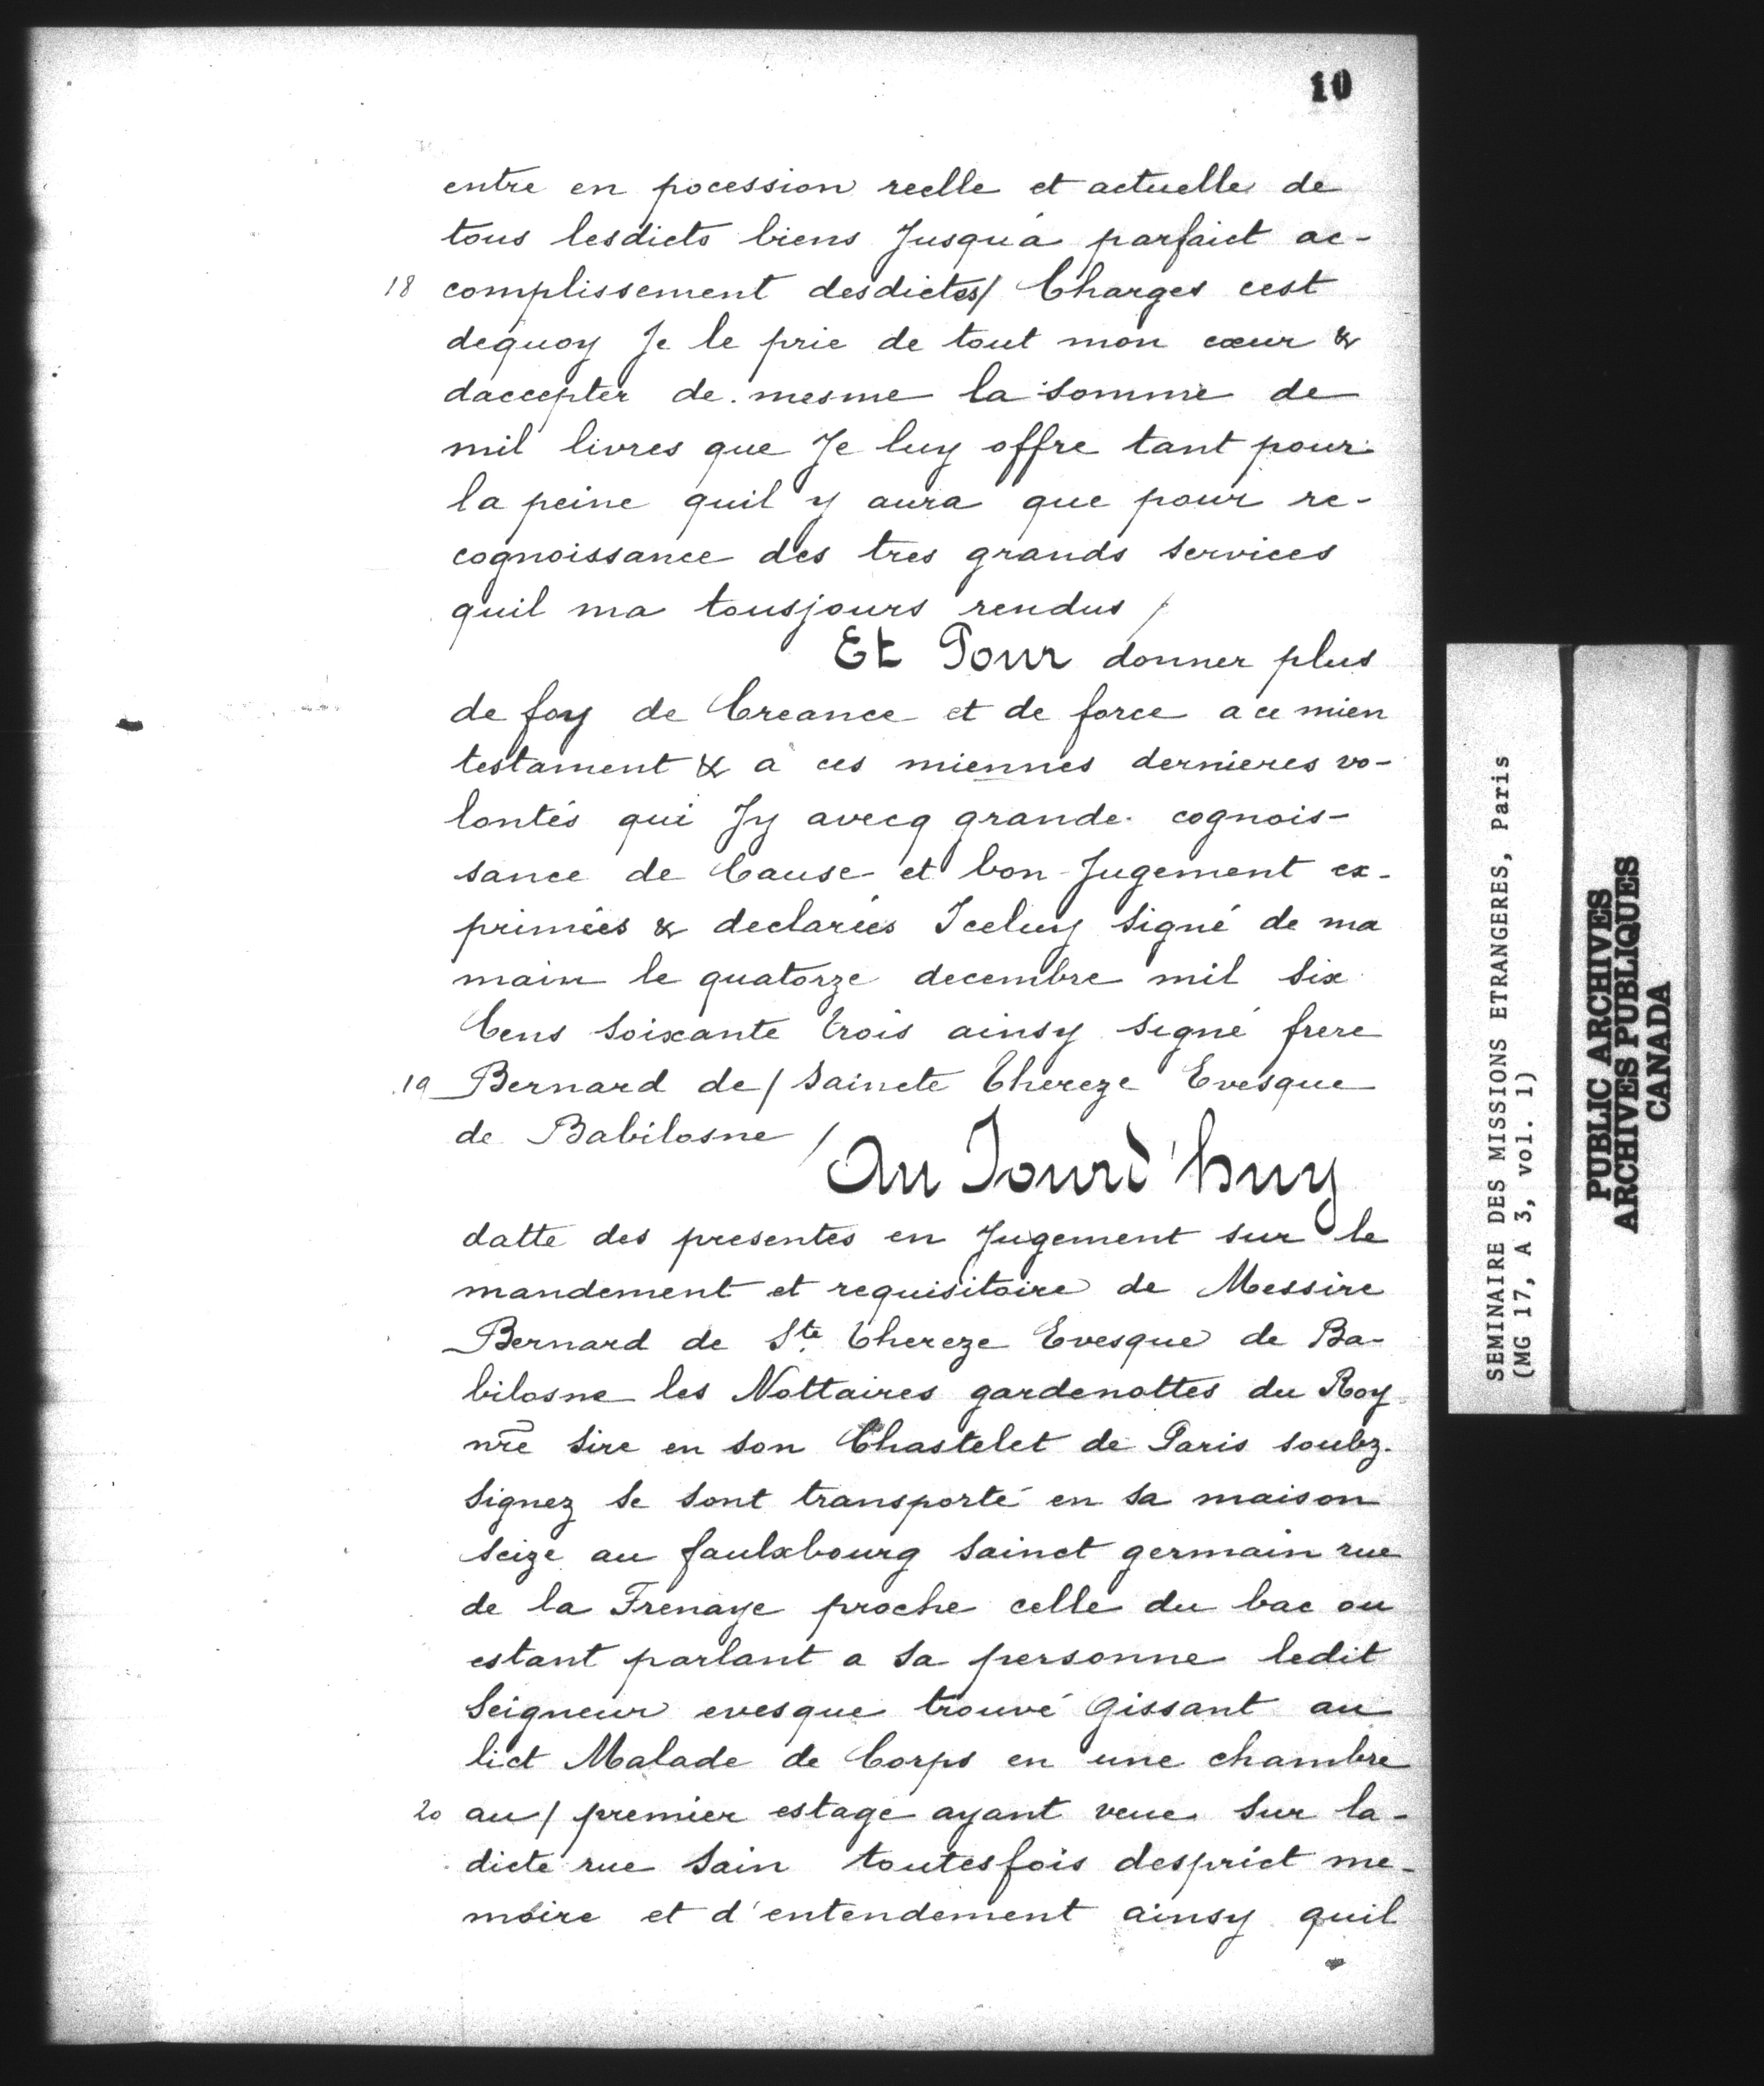 10
entre en pocession reelle et actuelle de
tous lesdicts biens Jusqu'a parfaict ac-
18 complissement desdictes/ Charges cest
dequoy Je le prie de tout mon cœur &
daccepter de mesme la somme de
mil livres que Je luy offre tant pour
la peine quil y aura que pour re-
cognoissance des tres grands services
quil ma tousjours rendus /
Et Pour donner plus
de foy de Creance et de force a ce mien
testament & a ces miennes dernieres vo-
lontés qui Jy avecq grande cognois-
sance de Cause et bon Jugement ex-
primées & declarées Iceluy signé de ma
main le quatorze decembre mil six
Cens soixante trois ainsy signé frere
19 Bernard de / saincte Thereze Evesque
de Babilosne /
Au Jourd'huy
datte des presentes en Jugement sur le
mandement et requisitoire de Messire
Bernard de Ste Thereze Evesque de Ba-
bilosne les Nottaires gardenottes du Roy
nr̃e sire en son Chastelet de Paris soubz-
signez se sont transporté en sa maison
seize au faulxbourg sainct germain rue
de la Frenaye proche celle du bac ou
estant parlant a sa personne ledit
Seigneur evesque trouvé Gissant au
lict Malade de Corps en une chambre
20 au / premier estage ayant veue sur la-
dicte rue sain toutesfois desprict me-
moire et d'entendement ainsy quil
SEMINAIRE DES MISSIONS ETRANGERES, Paris
(MG 17, A 3, vol. 1)
PUBLIC ARCHIVES
ARCHIVES PUBLIQUES
CANADA